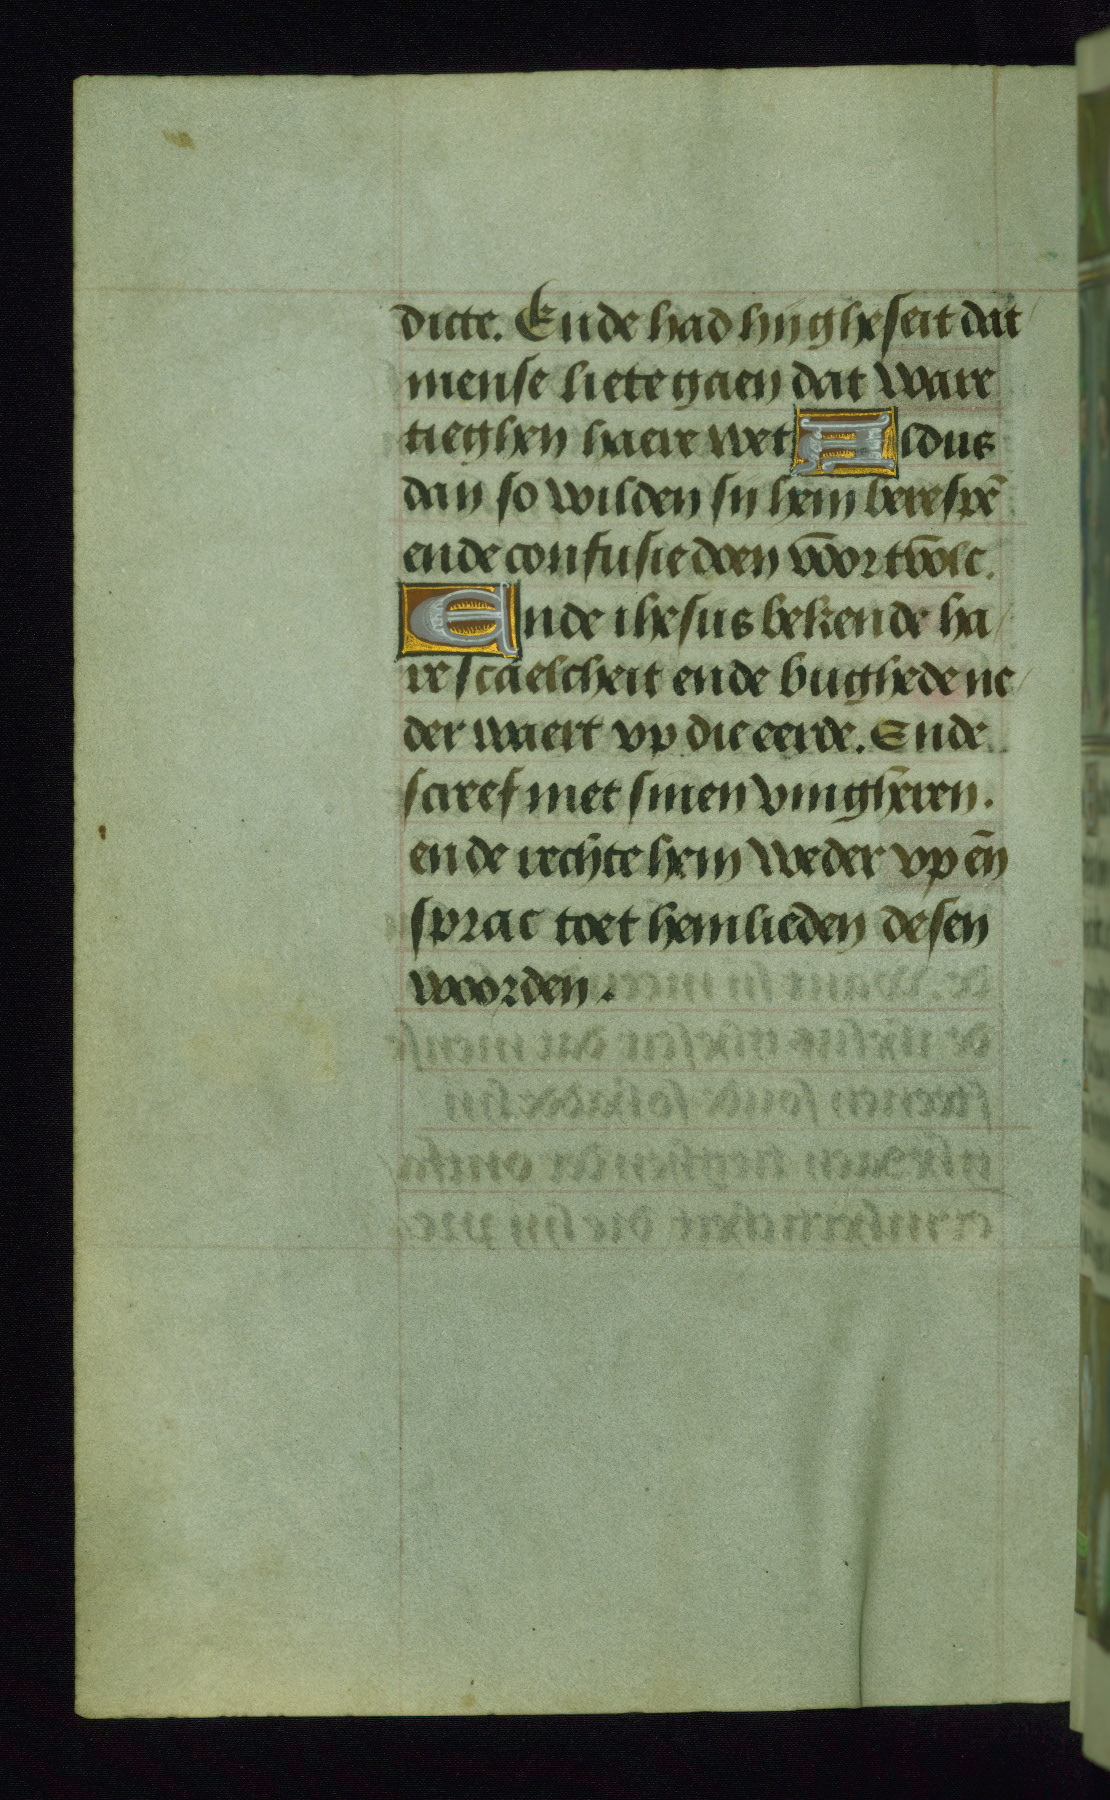 dicte. Ende had hij gheseit dat
mense liete gaen dat ware
tieghen haere wet Aldus
dan so wilden sij hem berespē
ende confusie doen voor tvolc.
Ende ihesus bekende ha
re scaelcheit ende bughede ne
der waert vp die eerde. Ende
screef met sinen vingheren.
ende rechte hem weder vp eñ
sprac toet hemlieden desen
woorden.